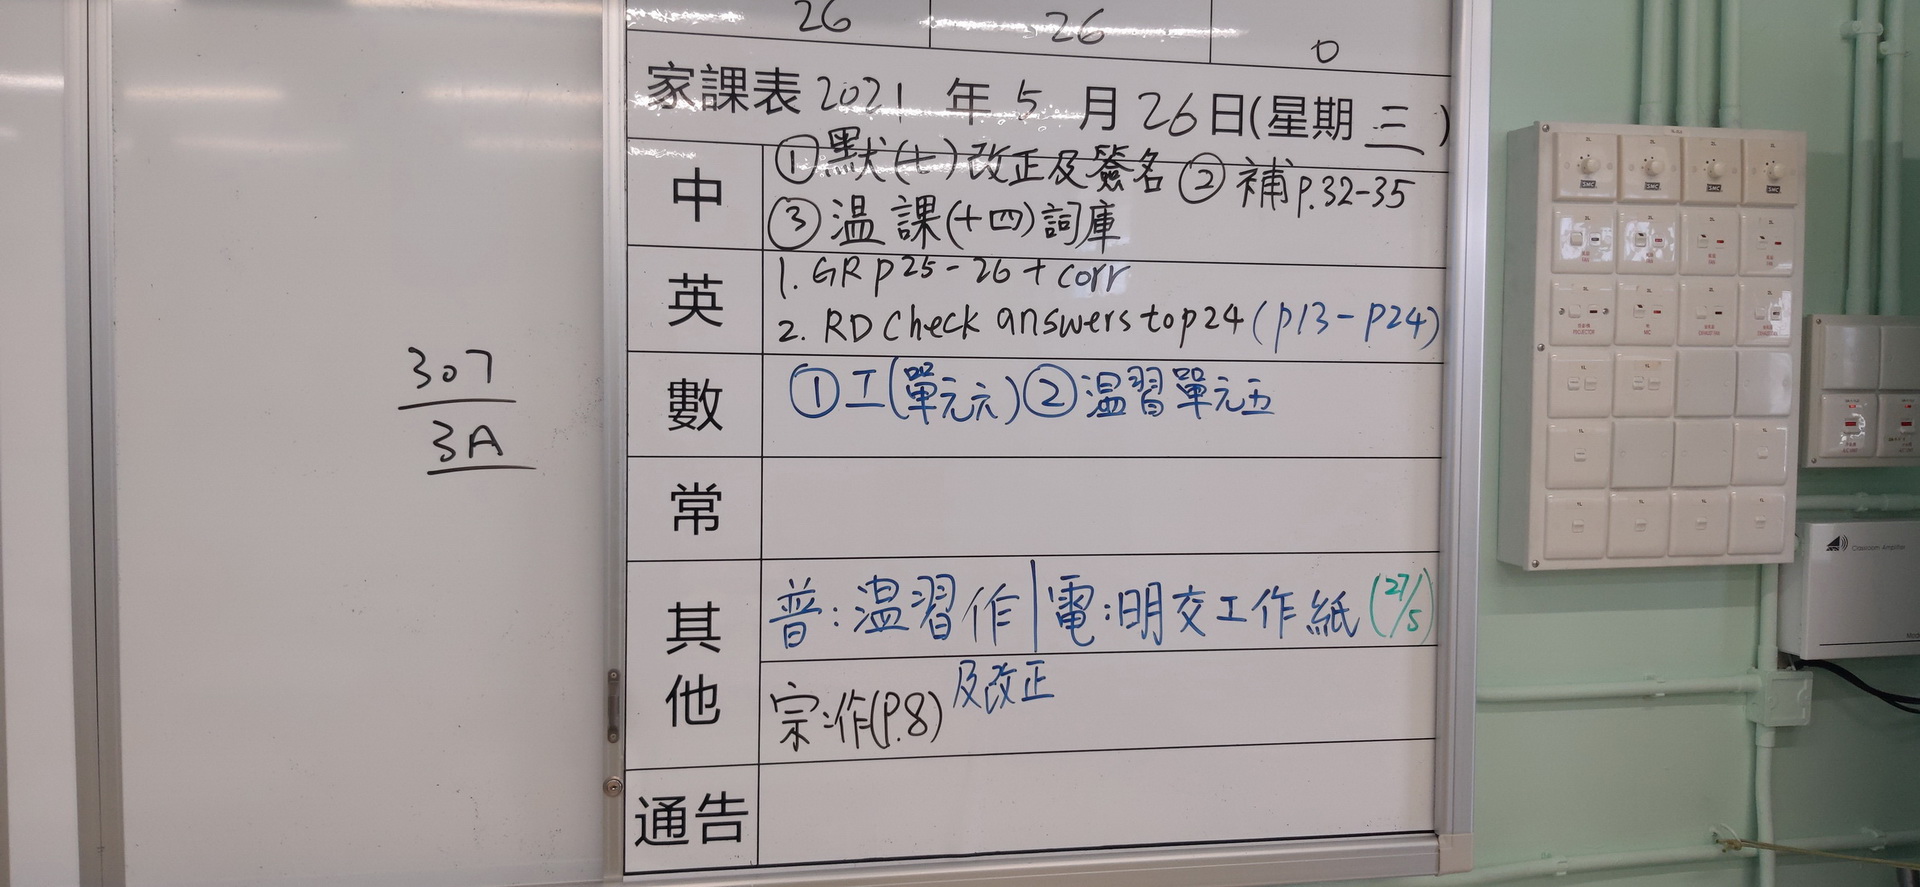 26 26 0
家課表 2021 年 5 月 26 日(星期 三 )
中
①默(七)改正及簽名 ② 補 p.32-35
③ 温課(十四)詞庫
英
1. GR p25-26 + corr
2. RD Check answers to p24 (p13-p24)
數
①工(單元六)②温習單元五
常
其他
普:温習作|電:明交工作紙(27/5)
宗:作(P.8) 及改正
通告
307
3A
SMC SMC SMC SMC
PROJECTOR
Classroom Amplifier